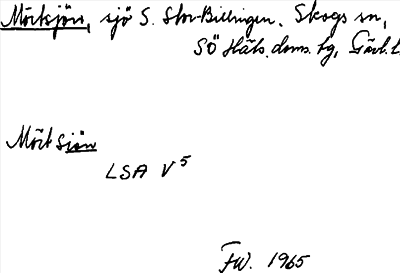 Mörksjön, sjö S. Stor-Billingen, Skogs sn,
SÖ Häls. doms. tg, Gävl. l.
Mörksjön
LSA V5
FW. 1965